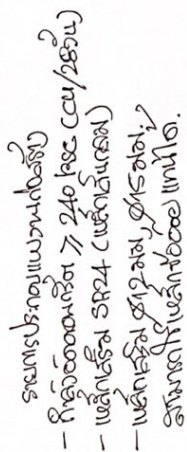 รายการประกอบแบบงานก่อสร้าง
- กำลังอัดคอนกรีต ≥ 240 ksc (CU/28วัน)
- เหล็กเสริม SR24 (เหล็กเส้นกลม)
- เหล็กเสริม Ø12มม, Ø15มม,
สามารถใช้เหล็กข้ออ้อย แทนได้.